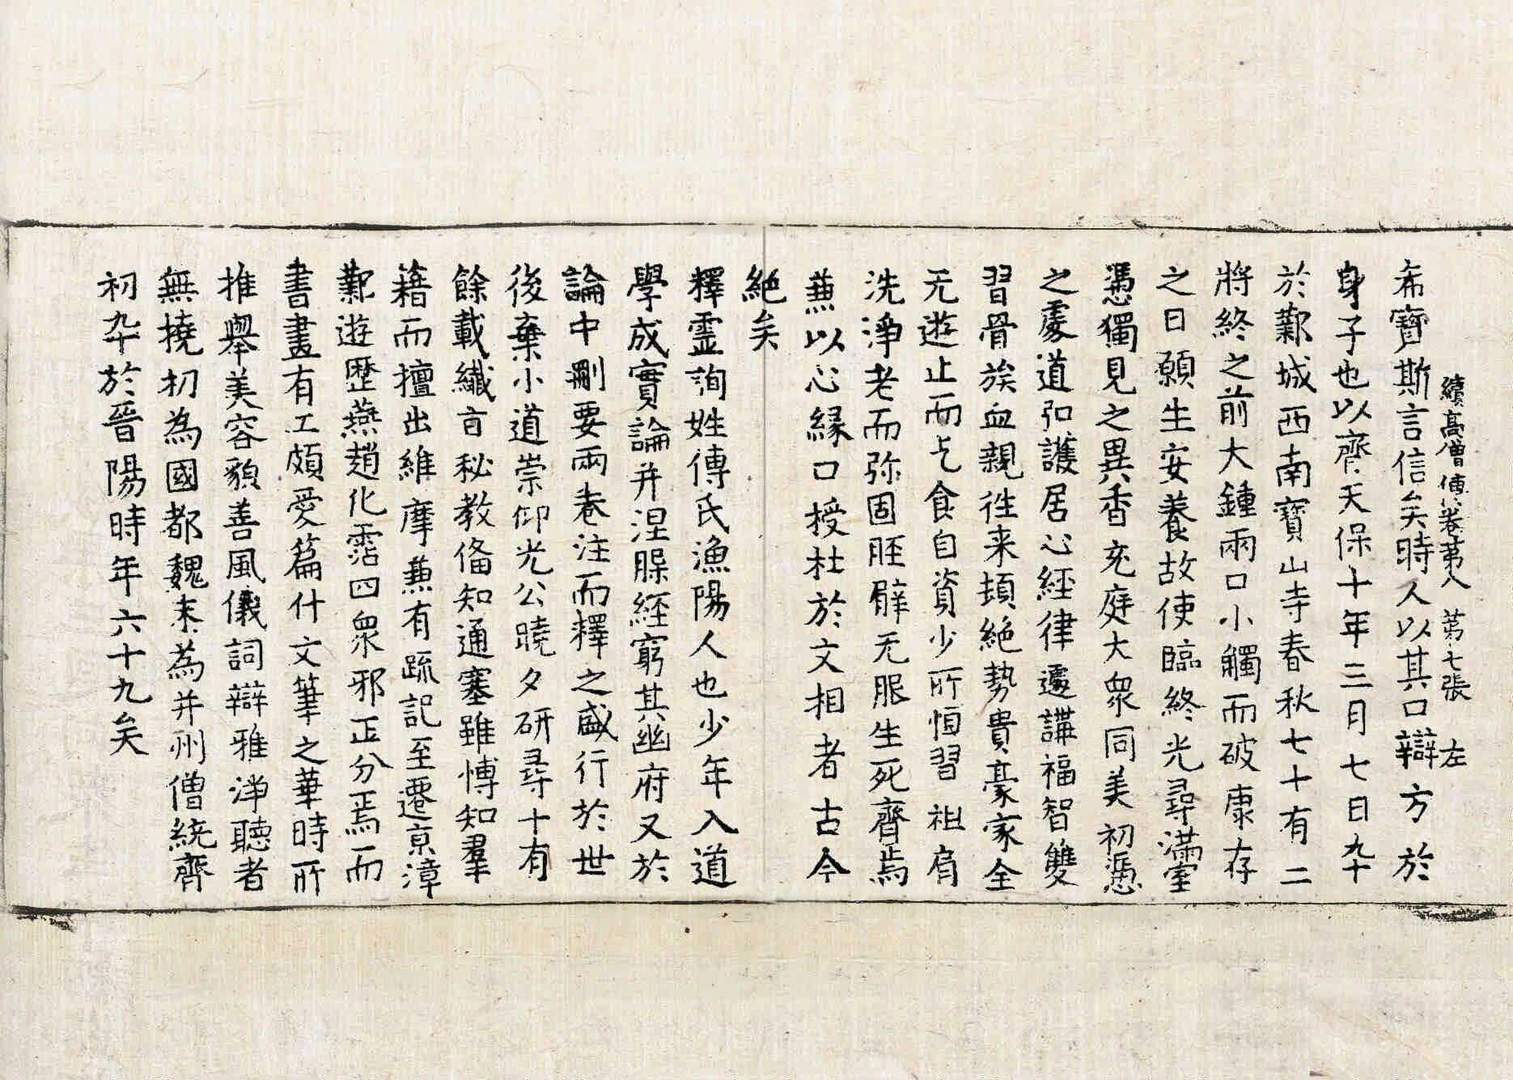 續高僧傳卷苐八 苐七張 左
希寶斯言信矣時人以其口辯方於
身子也以齊天保十年三月七日卆
於鄴城西南寶山寺春秋七十有二
將終之前大鍾兩口小觸而破康存
之日願生安養故使臨終光尋滿室
憑獨見之異香充庭大衆同美初憑
之處道弘護居心經律遞講福智雙
習骨族血親徃来頓絶勢貴豪家全
无遊止而乞食自資少所恒習袒肩
洗淨老而弥固胵髀无服生死齊焉
兼以心縁口授杜於文相者古今
絶矣
釋靈詢姓傅氏漁陽人也少年入道
學成實論并涅槃經窮其幽府又於
論中刪要兩巻注而釋之盛行於世
後棄小道崇仰光公曉夕研尋十有
餘載纎旨秘教俻知通塞雖博知羣
籍而擅出維摩兼有疏記至遷京漳
鄴遊歴燕趙化霑四衆邪正分焉而
書畫有工頗愛篇什文筆之華時所
推舉美容貌善風儀詞辯雅淨聽者
無撓初為國都魏末為并州僧統齊
初卆於晉陽時年六十九矣